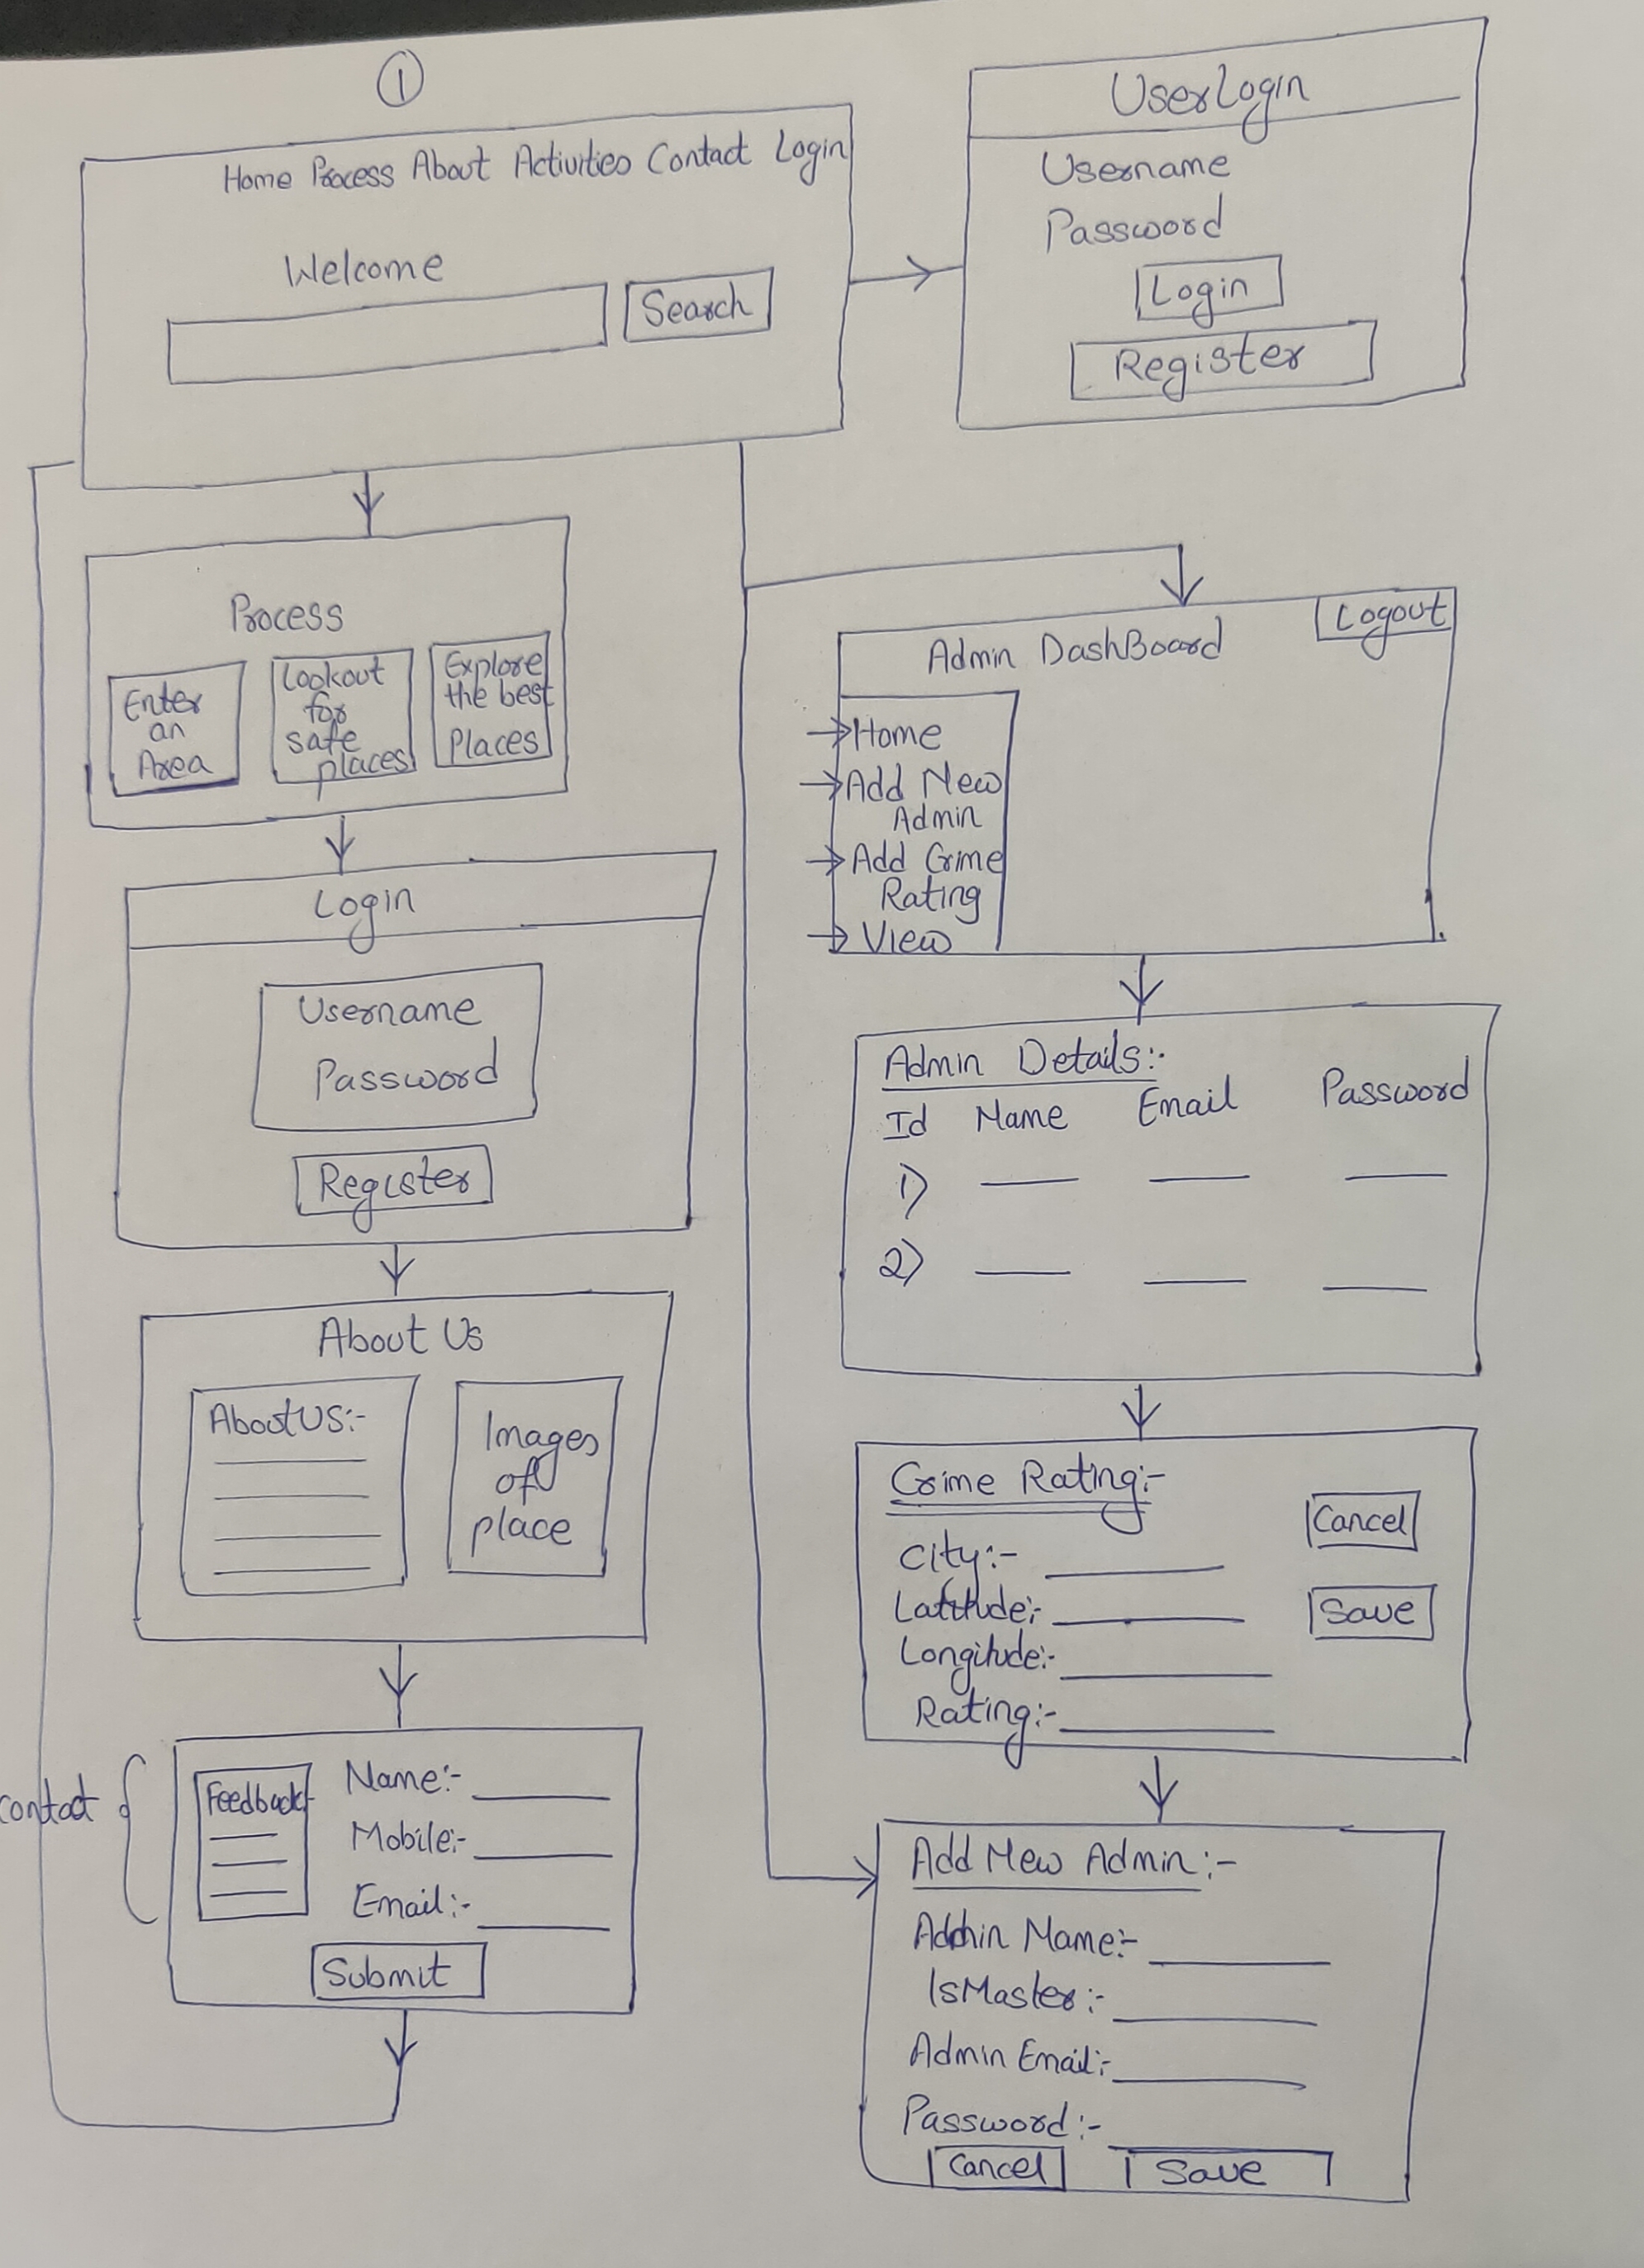 1
Home Process About Activities Contact Login
Welcome
Search
UserLogin
Username
Password
Login
Register
Process
Enter
an
Area
Lookout
for
safe
places
Explore
the best
Places
Login
Username
Password
Register
About Us
About US:-
Images
of
place
contact
Feedback
Name:-
Mobile:-
Email:-
Submit
Admin DashBoard
Logout
Home
Add New
Admin
Add Crime
Rating
View
Admin Details:-
Id Name Email Password
1)
2)
Crime Rating:-
City:-
Latitude:-
Longitude:-
Rating:-
Cancel
Save
Add New Admin:-
Admin Name:-
IsMaster:-
Admin Email:-
Password:-
Cancel
Save